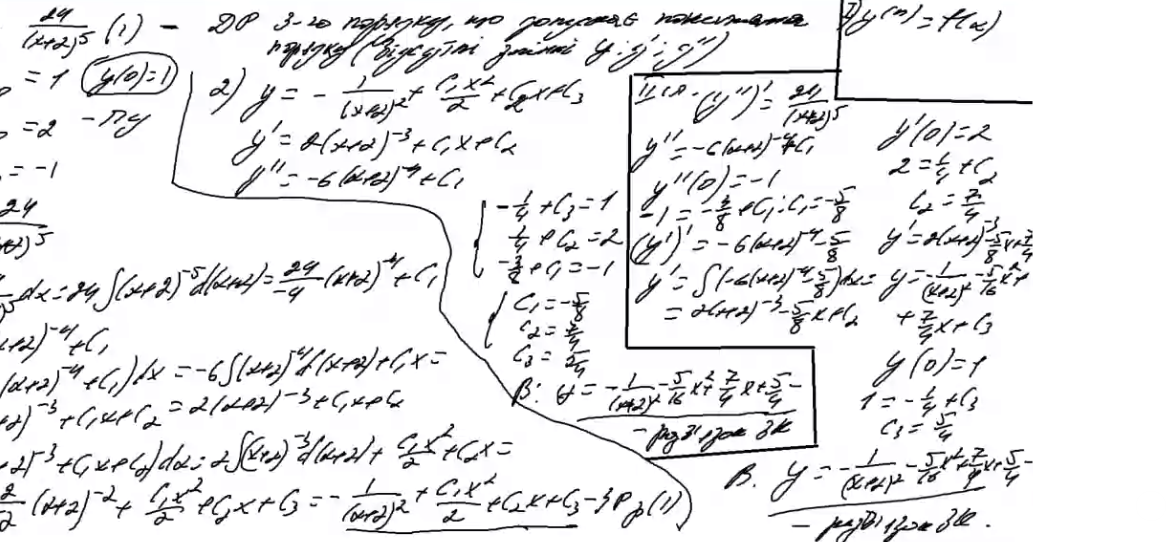 24/(x+2)^5 (1) - ДР 3-го порядку, що допускає пониження
порядку (відсутні змінні y; y'; y'')
= 1 (y(0)=1)
= 2
= -1
24
(x+2)^5
dx = 24∫(x+2)^-5 d(x+2) = 24/-4 (x+2)^-4 + C₁
(x+2)^-4 + C₁
(x+2)^-4 + C₁)dx = -6∫(x+2)^-4 d(x+2) + C₁x =
+2)^-3 + C₁x + C₂ = 2(x+2)^-3 + C₁x + C₂
+2)^-3 + C₁x + C₂)dx = 2∫(x+2)^-3 d(x+2) + C₁x²/2 + C₂x =
2/2 (x+2)^-2 + C₁x²/2 + C₂x + C₃ = -1/(x+2)² + C₁x²/2 + C₂x + C₃ - ЗР д (1)
2) y = -1/(x+2)² + C₁x²/2 + C₂x + C₃
y' = 2(x+2)^-3 + C₁x + C₂
y'' = -6(x+2)^-4 + C₁
-1/4 + C₃ = 1
1/4 + C₂ = 2
-3/8 + C₁ = -1
C₁ = -5/8
C₂ = 7/4
C₃ = 5/4
В: y = -1/(x+2)² - 5/16 x² + 7/4 x + 5/4 -
- розв'язок ЗК
y^(n) = f(x)
II сп. (y'')' = 24/(x+2)^5
y'' = -6(x+2)^-4 + C₁
y''(0) = -1
-1 = -3/8 + C₁; C₁ = -5/8
(y')' = -6(x+2)^-4 - 5/8
y' = ∫(-6(x+2)^-4 - 5/8)dx =
= 2(x+2)^-3 - 5/8 x + C₂
y'(0) = 2
2 = 1/4 + C₂
C₂ = 7/4
y' = 2(x+2)^-3 - 5/8 x + 7/4
y = -1/(x+2)² - 5/16 x² +
+ 7/4 x + C₃
y(0) = 1
1 = -1/4 + C₃
C₃ = 5/4
В. y = -1/(x+2)² - 5/16 x² + 7/4 x + 5/4 -
- розв'язок ЗК.